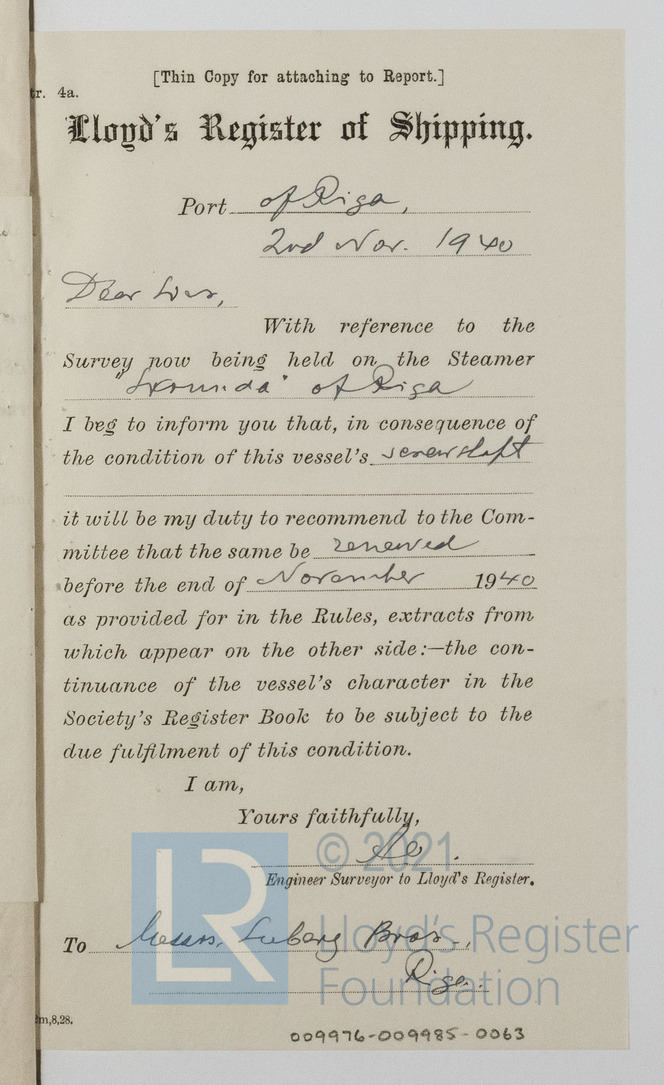 [Thin Copy for attaching to Report.]
tr. 4a.
Lloyd's Register of Shipping.
Port of Riga,
2nd Nov. 1940
Dear Sirs,
With reference to the
Survey now being held on the Steamer
"Skrunda" of Riga
I beg to inform you that, in consequence of
the condition of this vessel's screwshaft
it will be my duty to recommend to the Com-
mittee that the same be renewed
before the end of November 1940
as provided for in the Rules, extracts from
which appear on the other side:—the con-
tinuance of the vessel's character in the
Society's Register Book to be subject to the
due fulfilment of this condition.
I am,
Yours faithfully,
© 2021
Engineer Surveyor to Lloyd's Register.
LR
Lloyd's Register
Foundation
To Messrs. Bros.,
Riga.
m,8,28.
009976-009985-0063